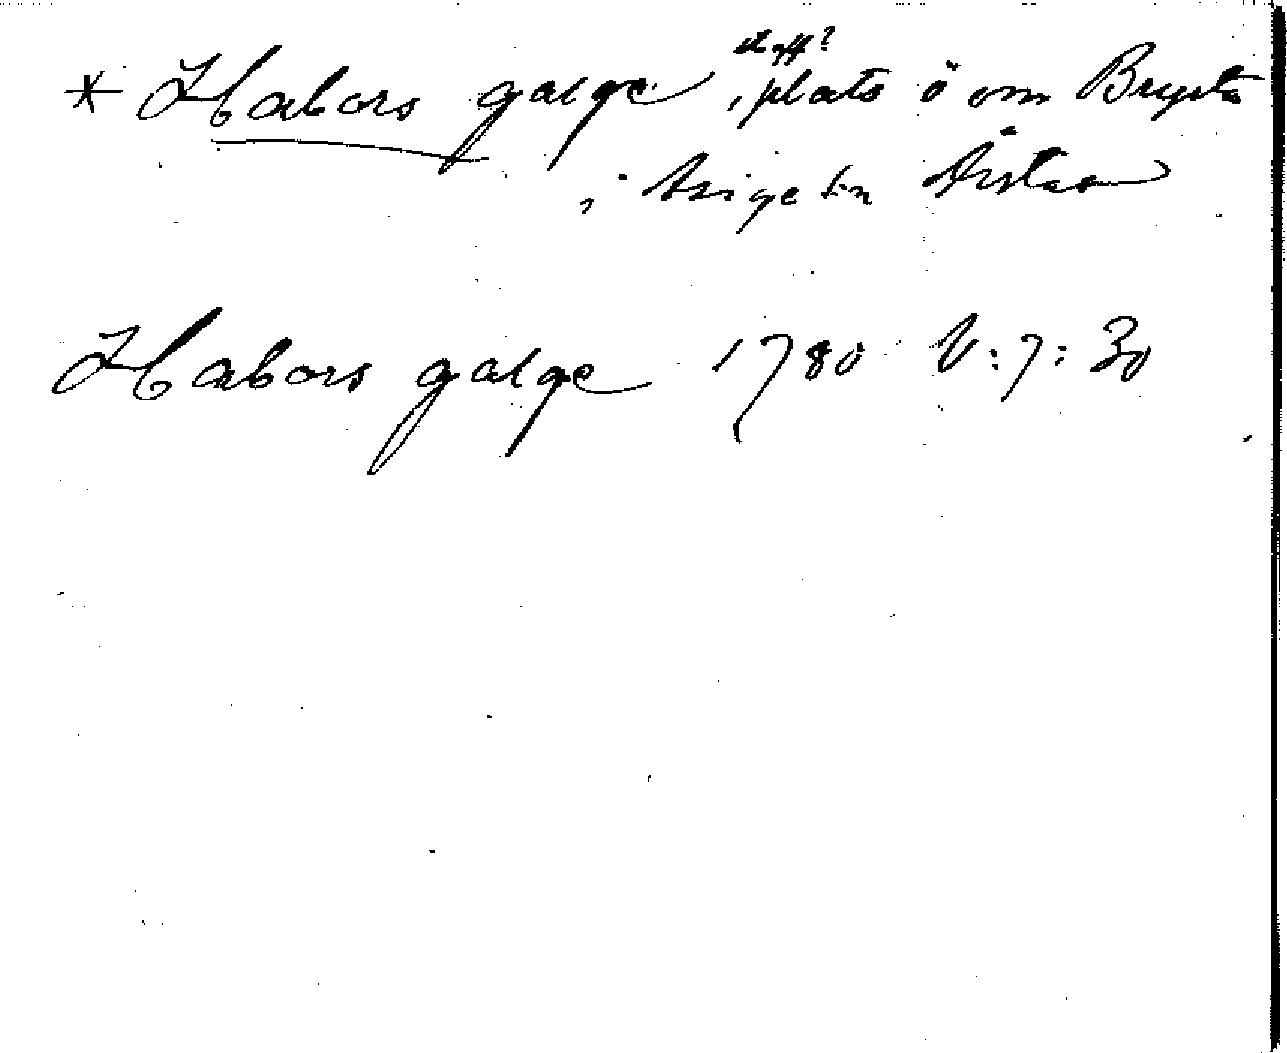 * Habors galge, plats ö om Brysta
i Asige sn Årstad
Habors galge 1780 V:7:30